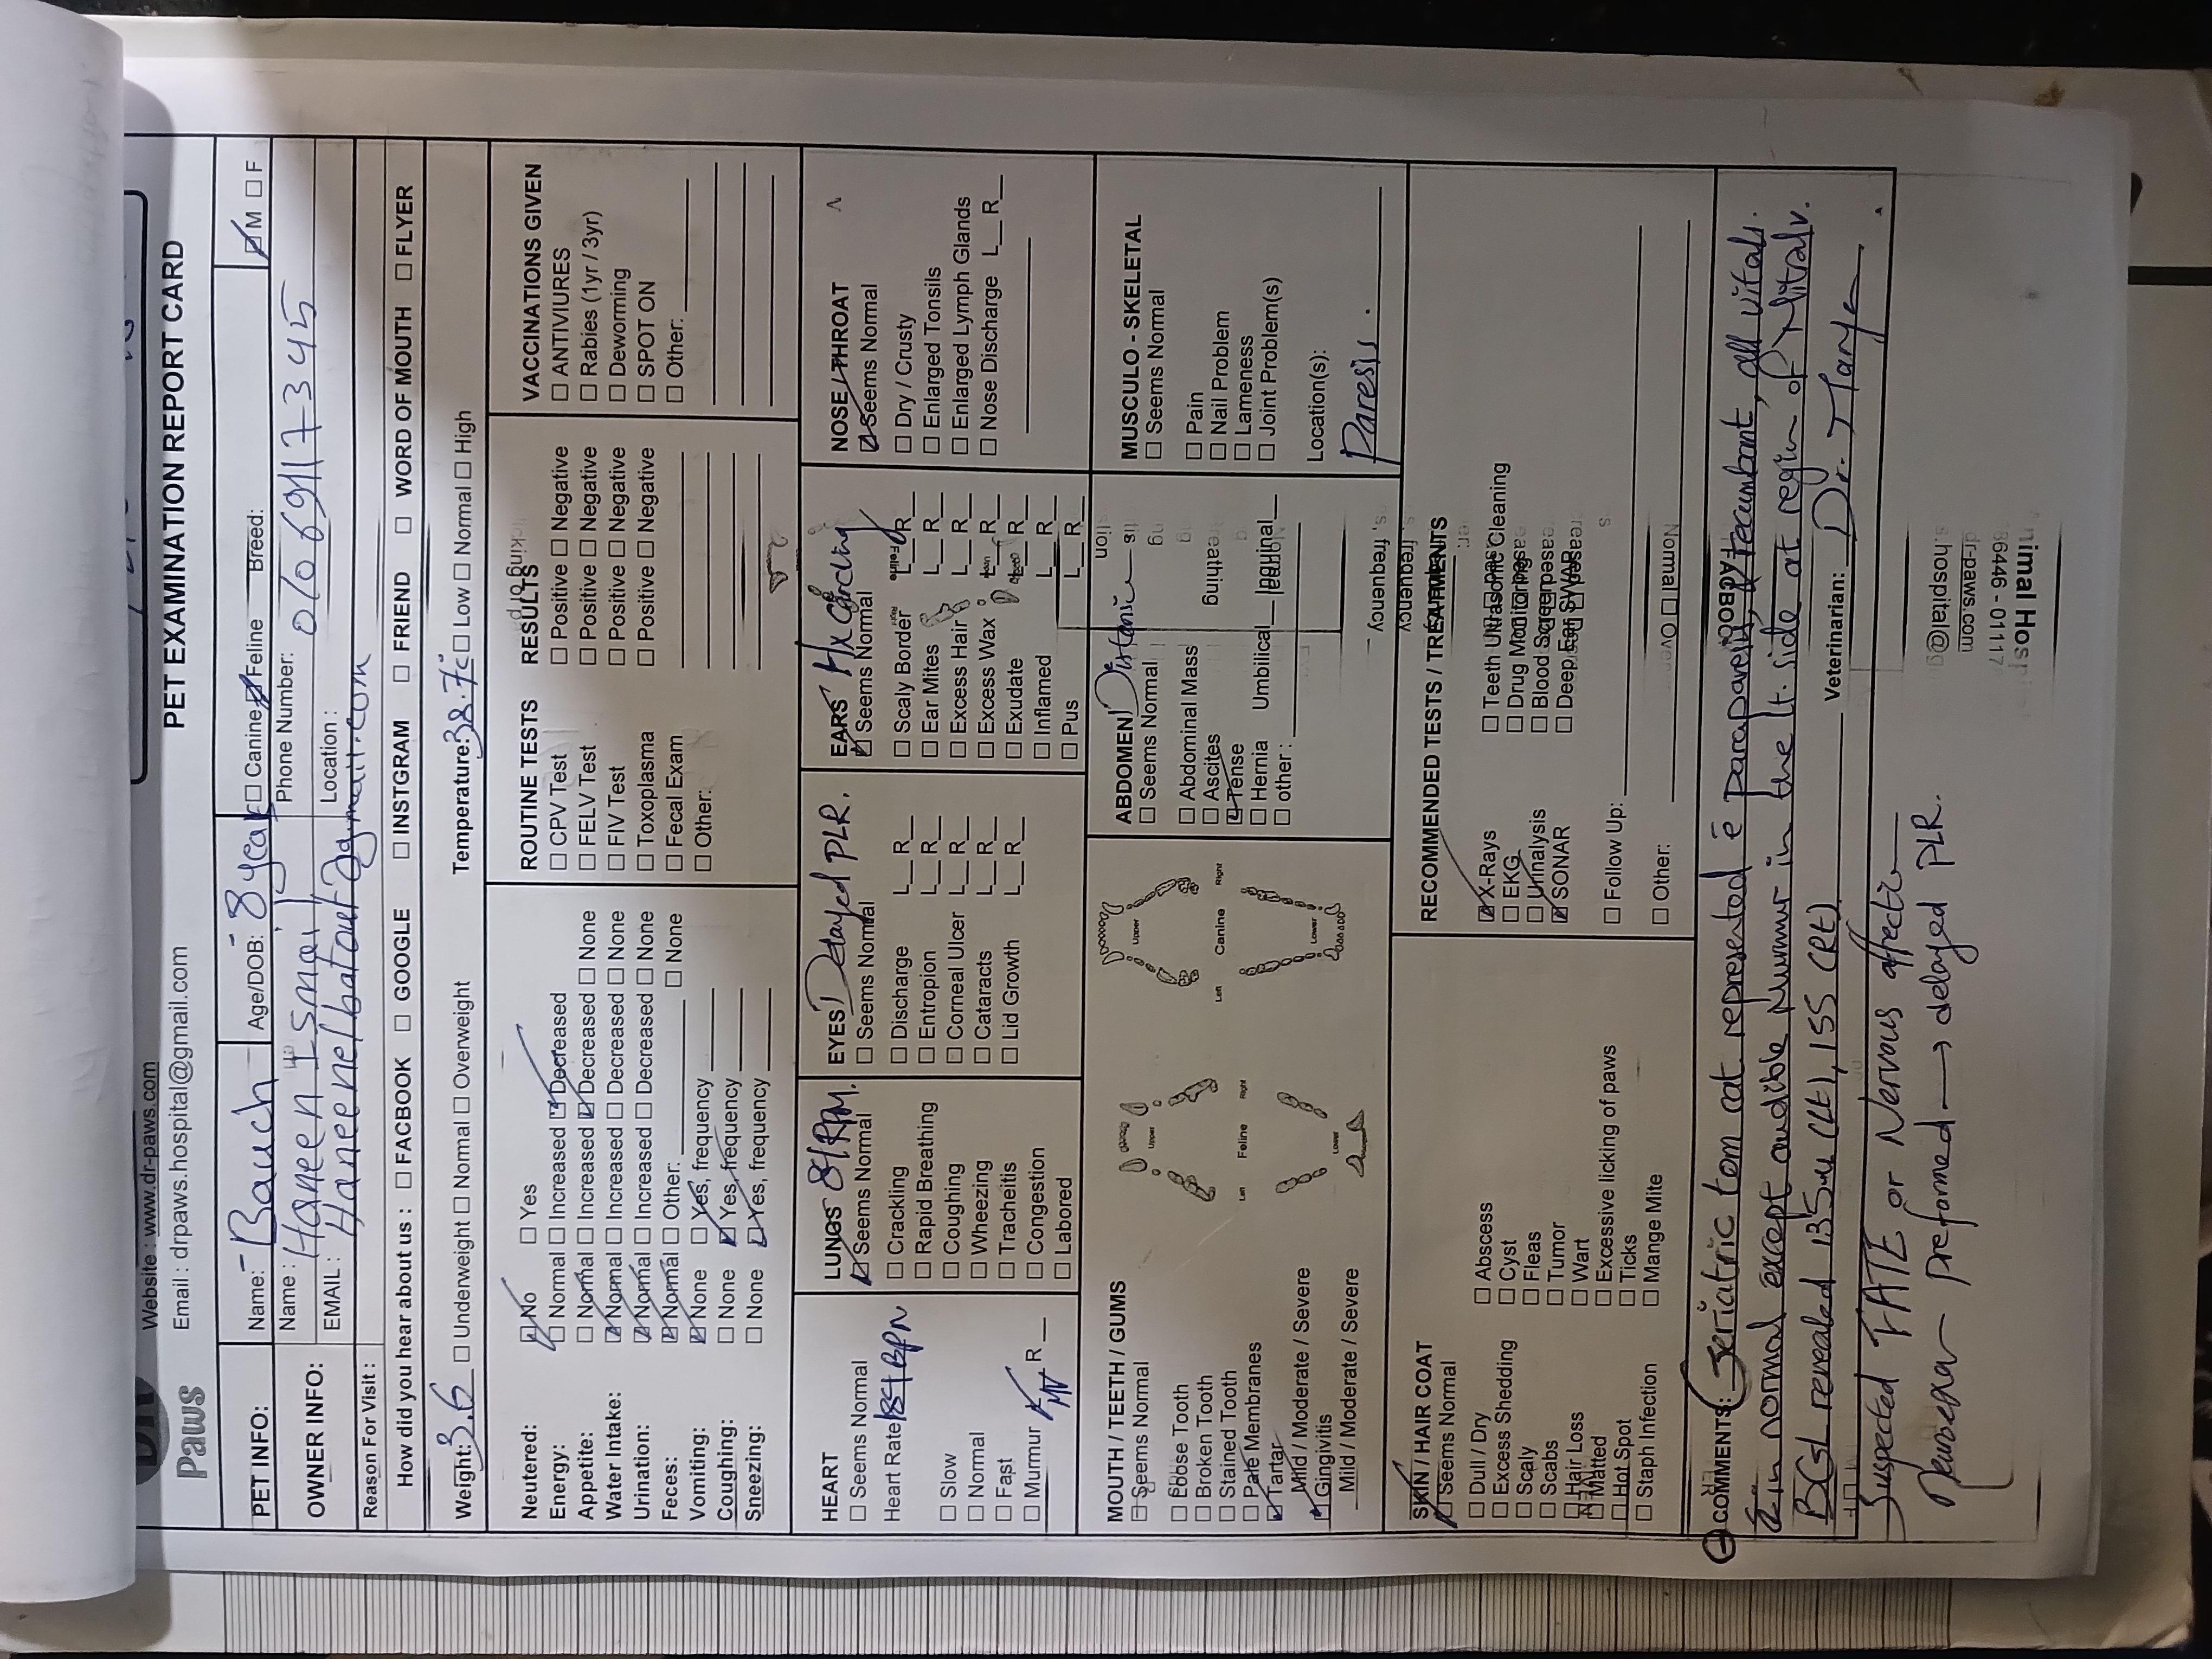 DR
Paws
Website : www.dr-paws.com
Email : drpaws.hospital@gmail.com
PET EXAMINATION REPORT CARD
PET INFO: Name: Bauch Age/DOB: 8 year ☐ Canine ☑ Feline Breed: ☑ M ☐ F
OWNER INFO: Name : Haneen Ismail Phone Number: 01069117345
EMAIL : Location :
Reason For Visit :
How did you hear about us : ☐ FACEBOOK ☐ GOOGLE ☐ INSTGRAM ☐ FRIEND ☐ WORD OF MOUTH ☐ FLYER
Weight: 3.6 ☐ Underweight ☐ Normal ☐ Overweight Temperature: 38.7c ☐ Low ☐ Normal ☐ High
Neutered: ☑ No ☐ Yes
Energy: ☐ Normal ☐ Increased ☑ Decreased
Appetite: ☐ Normal ☐ Increased ☑ Decreased ☐ None
Water Intake: ☑ Normal ☐ Increased ☐ Decreased ☐ None
Urination: ☑ Normal ☐ Increased ☐ Decreased ☐ None
Feces: ☑ Normal ☐ Other: ☐ None
Vomiting: ☑ None ☐ Yes, frequency
Coughing: ☐ None ☑ Yes, frequency
Sneezing: ☐ None ☑ Yes, frequency
ROUTINE TESTS RESULTS
☐ CPV Test ☐ Positive ☐ Negative
☐ FELV Test ☐ Positive ☐ Negative
☐ FIV Test ☐ Positive ☐ Negative
☐ Toxoplasma ☐ Positive ☐ Negative
☐ Fecal Exam
☐ Other:
VACCINATIONS GIVEN
☐ ANTIVIURES
☐ Rabies (1yr / 3yr)
☐ Deworming
☐ SPOT ON
☐ Other:
HEART
☐ Seems Normal
Heart Rate BPM
☐ Slow
☐ Normal
☐ Fast
☐ Murmur R
LUNGS RPM.
☑ Seems Normal
☐ Crackling
☐ Rapid Breathing
☐ Coughing
☐ Wheezing
☐ Tracheitis
☐ Congestion
☐ Labored
EYES Delayed PLR.
☐ Seems Normal
☐ Discharge L__R__
☐ Entropion L__R__
☐ Corneal Ulcer L__R__
☐ Cataracts L__R__
☐ Lid Growth L__R__
EARS
☑ Seems Normal
☐ Scaly Border L__R__
☐ Ear Mites L__R__
☐ Excess Hair L__R__
☐ Excess Wax L__R__
☐ Exudate L__R__
☐ Inflamed L__R__
☐ Pus L__R__
NOSE / THROAT
☑ Seems Normal
☐ Dry / Crusty
☐ Enlarged Tonsils
☐ Enlarged Lymph Glands
☐ Nose Discharge L__R__
MOUTH / TEETH / GUMS
☐ Seems Normal
☐ Loose Tooth
☐ Broken Tooth
☐ Stained Tooth
☐ Pale Membranes
☑ Tartar
Mild / Moderate / Severe
☑ Gingivitis
Mild / Moderate / Severe
Upper
Left Feline Right
Lower
Upper
Left Canine Right
Lower
ABDOMEN
☐ Seems Normal
☐ Abdominal Mass
☐ Ascites
☑ Tense
☐ Hernia Umbilical Inguinal
☐ other :
MUSCULO - SKELETAL
☐ Seems Normal
☐ Pain
☐ Nail Problem
☐ Lameness
☐ Joint Problem(s)
Location(s):
Paresis.
SKIN / HAIR COAT
☑ Seems Normal
☐ Dull / Dry
☐ Excess Shedding
☐ Scaly
☐ Scabs
☐ Hair Loss
☐ Matted
☐ Hot Spot
☐ Staph Infection
☐ Abscess
☐ Cyst
☐ Fleas
☐ Tumor
☐ Wart
☐ Excessive licking of paws
☐ Ticks
☐ Mange Mite
RECOMMENDED TESTS / TREATMENTS
☑ X-Rays
☐ EKG
☐ Urinalysis
☑ SONAR
☐ Teeth Ultrasonic Cleaning
☐ Drug Monitoring
☐ Blood Screen
☐ Deep Ear SWAP
☐ Follow Up:
☐ Other:
COMMENTS: Geriatric tom cat represented c̄ paraparesis, recumbent, all vitals
normal except audible Murmur in the lt. side at region of Mitral v.
BGL revealed 135 (LF), 155 (RF) Veterinarian: Dr.
Suspected FATE or Nervous affection
preformed → delayed PLR.